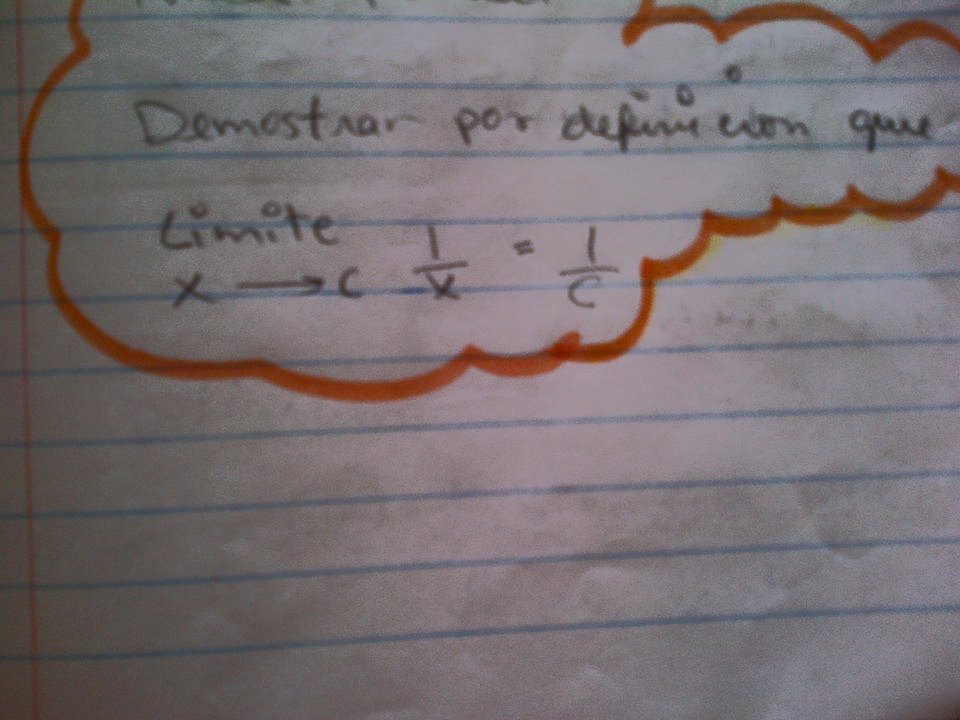 Demostrar por definicion que
Limite
x → c 1/x = 1/c